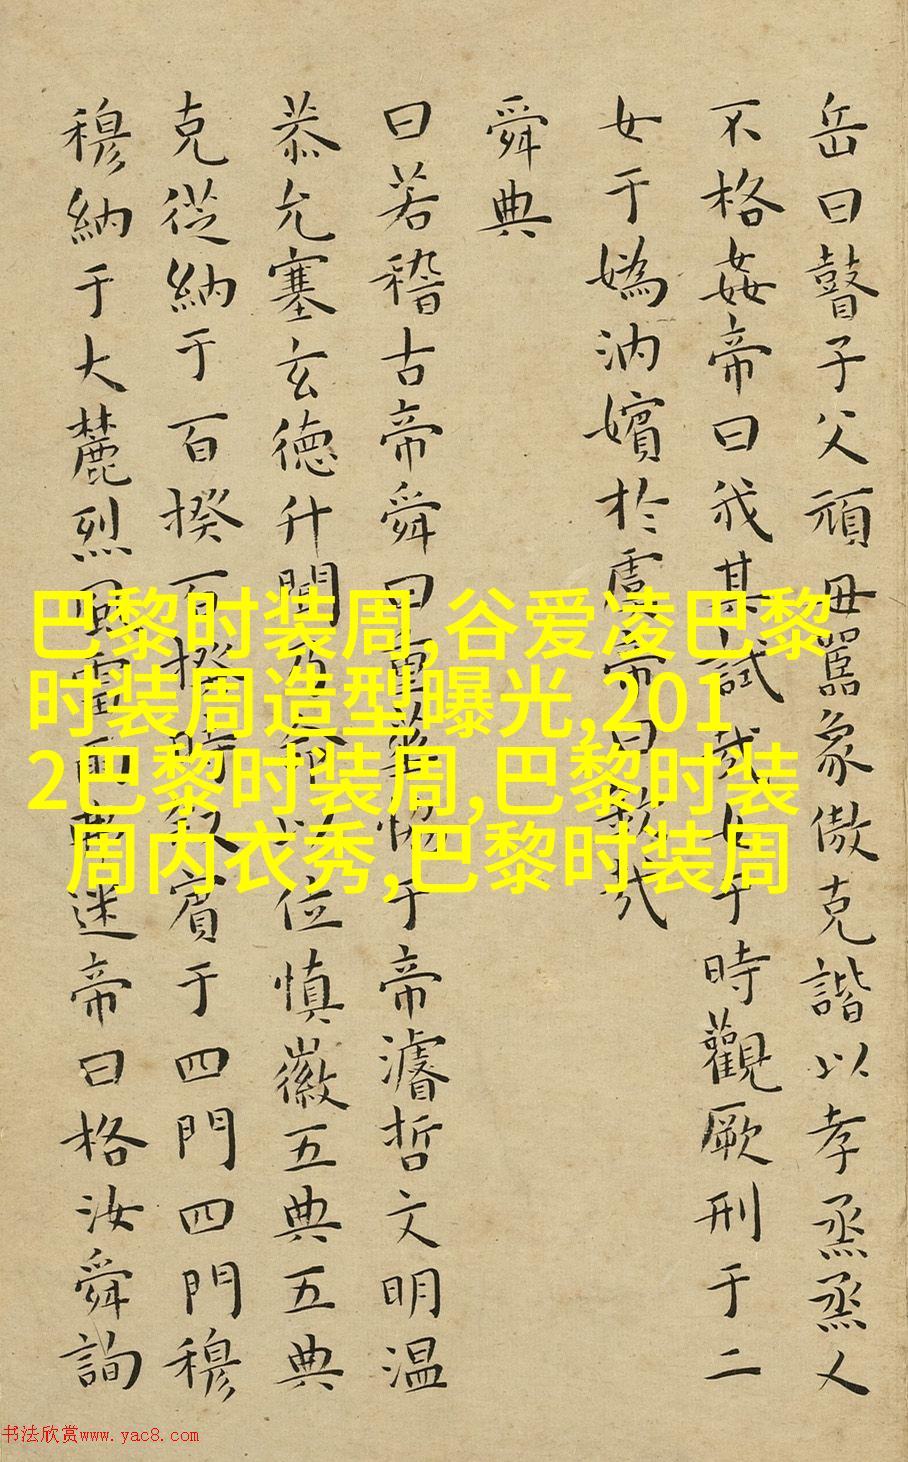 岳曰瞽子父頑毋嚚象傲克諧以孝烝烝乂
不格姦帝曰我其試哉女于時觀厥刑于二
女于嬀汭嬪於虞帝曰欽哉
舜典
曰若稽古帝舜曰重華協于帝濬哲文明温
恭允塞玄德升聞乃命以位慎徽五典五典
克從納于百揆百揆時叙賓于四門四門穆
穆納于大麓烈風雷雨弗迷帝曰格汝舜詢
巴黎时装周,谷爱凌巴黎
时装周造型曝光,201
2巴黎时装周,巴黎时装
周内衣秀,巴黎时装周
书法欣赏www.yac8.com